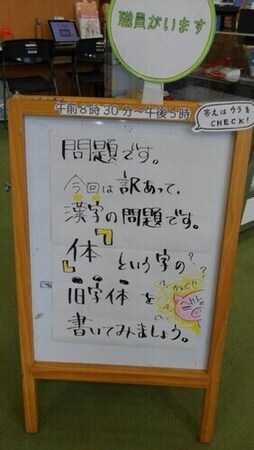 職員がいます
午前8時30分～午後5時
答えはウラを
CHECK!
問題です。
今回は訳あって、
漢字の問題です。
『体』という字の
旧字体を
書いてみましょう。